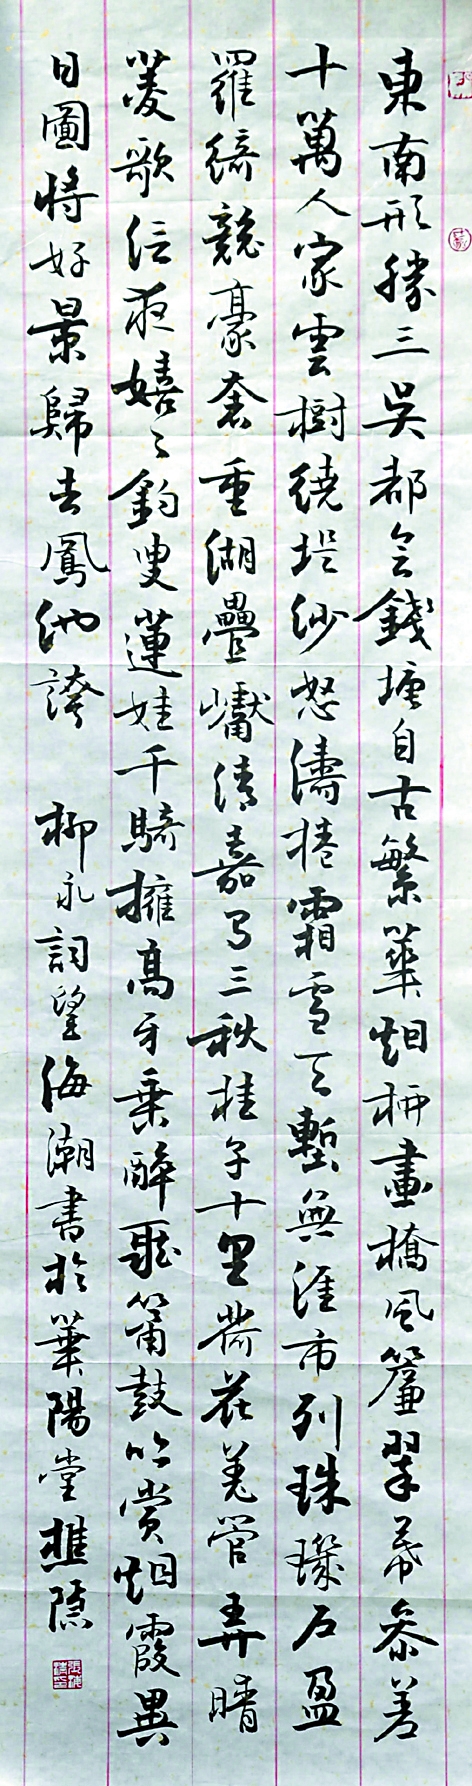 東南形勝三吳都会錢塘自古繁華烟柳畫橋風簾翠幕參差
十萬人家雲樹繞堤沙怒濤捲霜雪天塹無涯市列珠璣戶盈
羅綺競豪奢重湖疊巘清嘉有三秋桂子十里荷花羌管弄晴
菱歌泛夜嬉〻釣叟蓮娃千騎擁高牙乘醉聽簫鼓吟賞烟霞異
日圖將好景歸去鳳池誇 柳永詞望海潮書於華陽堂樵隱